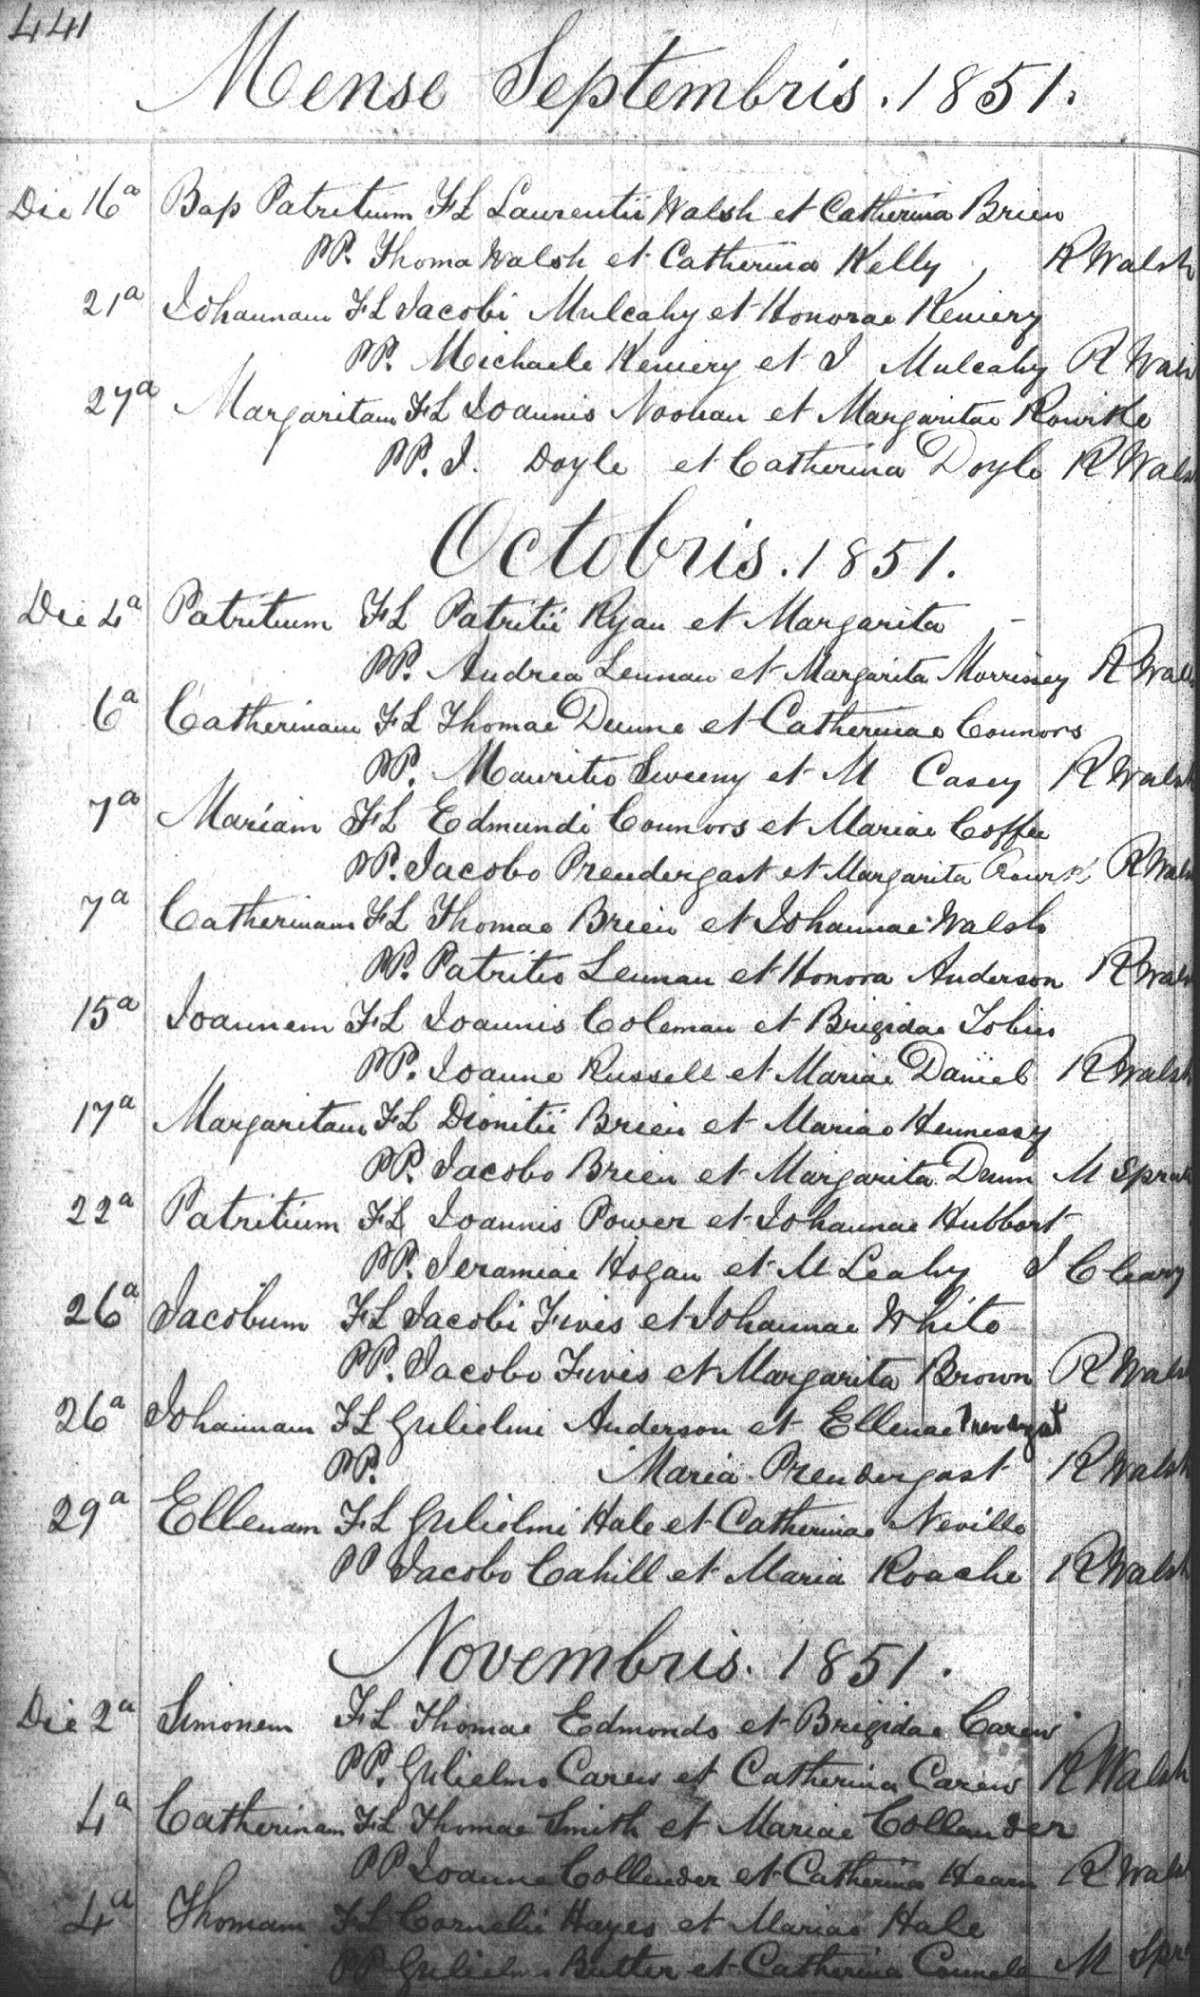 441
Mense Septembris. 1851.
Die 16a Bap Patritium FL Laurentii Walsh et Catherina Brien
PP. Thoma Walsh et Catherina Kelly, R Walsh
21a Johannam FL Jacobi Mulcahy et Honorae Keniery
PP. Michaele Keniery et J Mulcahy R Wals
27a Margaritam FL Joannis Noonan et Margaritae Rourke
PP. J. Doyle et Catherina Doyle R Wals
Octobris. 1851.
Die 4a Patritium FL Patritii Ryan et Margarita -
PP. Andrea Lennan et Margarita Morrissey R Wals
6a Catherinam FL Thomae Dunne et Catherinae Connors
PP. Mauritio Sweeny et M Casey R Walsh
7a Mariam FL Edmundi Connors et Mariae Coffee
PP. Jacobo Prendergast et Margarita R Wals
7a Catherinam FL Thomae Brien et Johannae Walsh
PP. Patritio Lennan et Honora Anderson R Wals
15a Joannem FL Joannis Coleman et Brigidae Tobin
PP. Joanne Russell et Mariae Daniel R Walsh
17a Margaritam FL Dionitii Brien et Mariae Hennessy
PP. Jacobo Brien et Margarita Dunn M Spra
22a Patritium FL Joannis Power et Johannae Hubbart
PP. Jeramiae Hogan et M Leahy J Cleary
26a Jacobum FL Jacobi Fives et Johannae White
PP. Jacobo Fives et Margarita Brown R Wals
26a Johannam FL Gulielmi Anderson et Ellenae
PP. Maria Prendergast R Walsh
29a Ellenam FL Gulielmi Hale et Catherinae Neville
PP Jacobo Cahill et Maria Roache R Walsh
Novembris. 1851.
Die 2a Simonem FL Thomae Edmonds et Brigidae Carew
PP. Gulielmo Carew et Catherina Carew R Walsh
4a Catherinam FL Thomae Smith et Mariae Collender
PP Joanne Collender et Catherina Hearn R Wals
4a Thomam FL Cornelii Hayes et Mariae Hale
PP Gulielmo Butler et Catherina M Spr